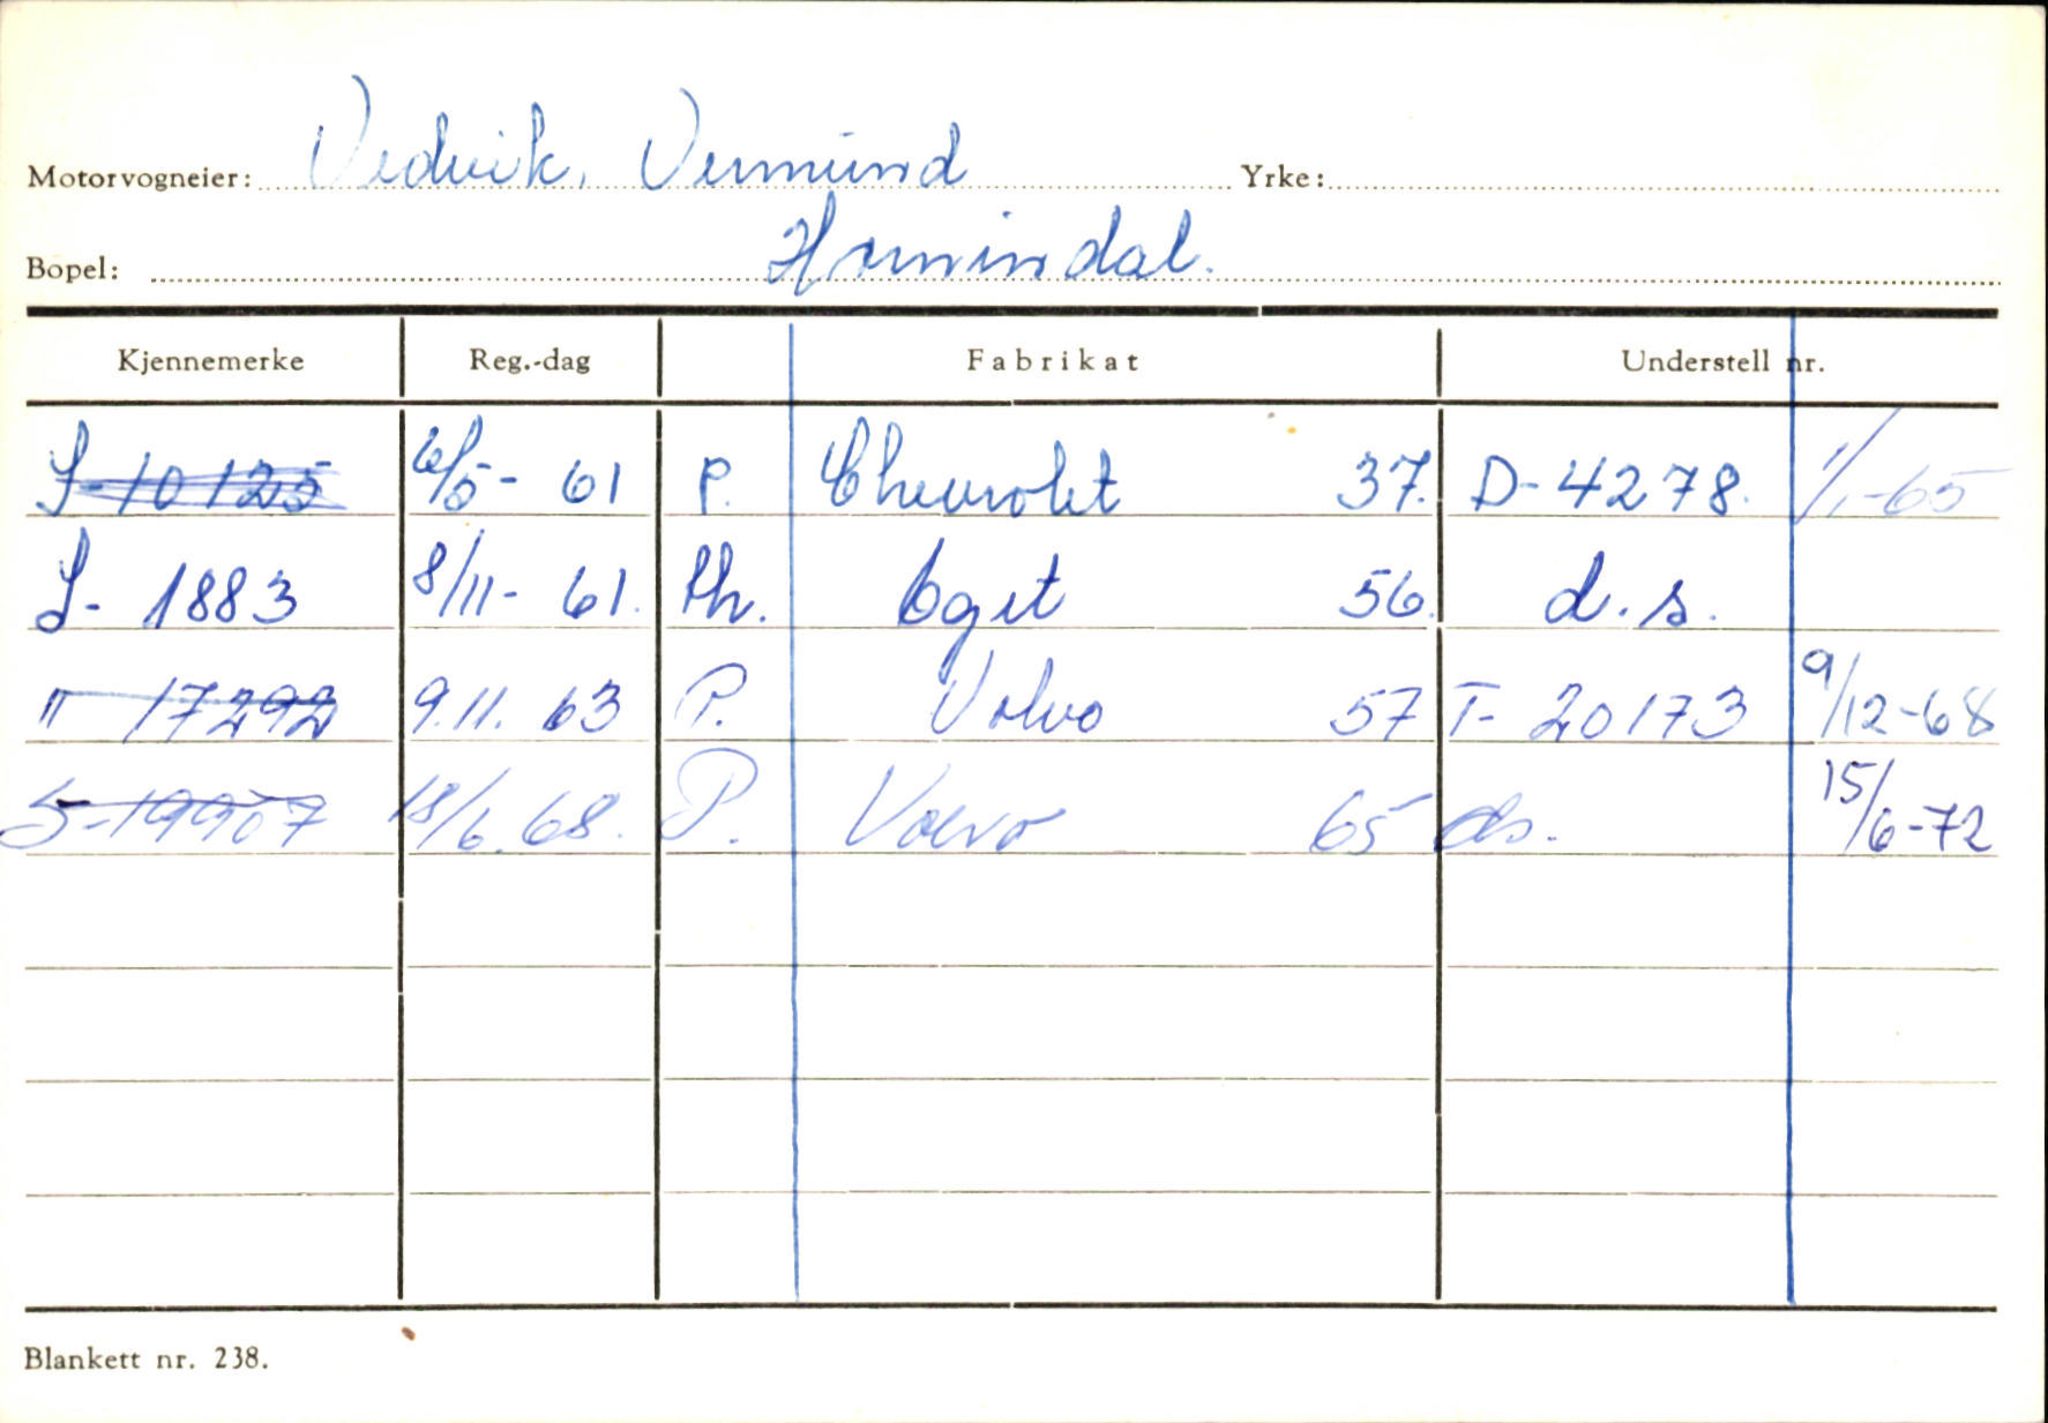 Motorvogneier: Vedvik, Vermund Yrke:
Bopel: Hornindal.
Kjennemerke Reg.-dag Fabrikat Understell nr.
S-10125 6/5- 61 P. Chevrolet 37. D-4278. 1/1-65
S- 1883 8/11- 61. th. Eget 56. d.s.
" 17292 9.11. 63 P. Volvo 57 T- 20173 9/12-68
S-19907 18/6.68. P. Volvo 65 ds. 15/6-72
Blankett nr. 238.